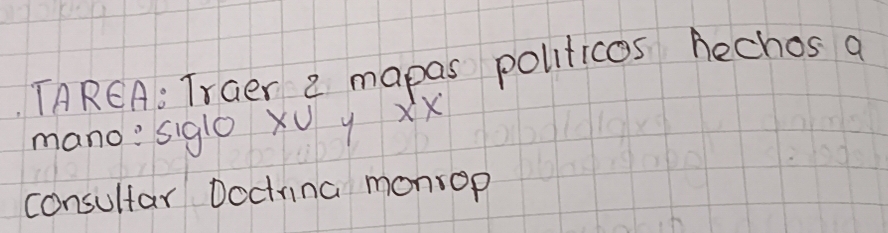 TAREA: Traer 2 mapas politicos hechos a
mano: siglo XV y XX
consultar Doctrina monrop